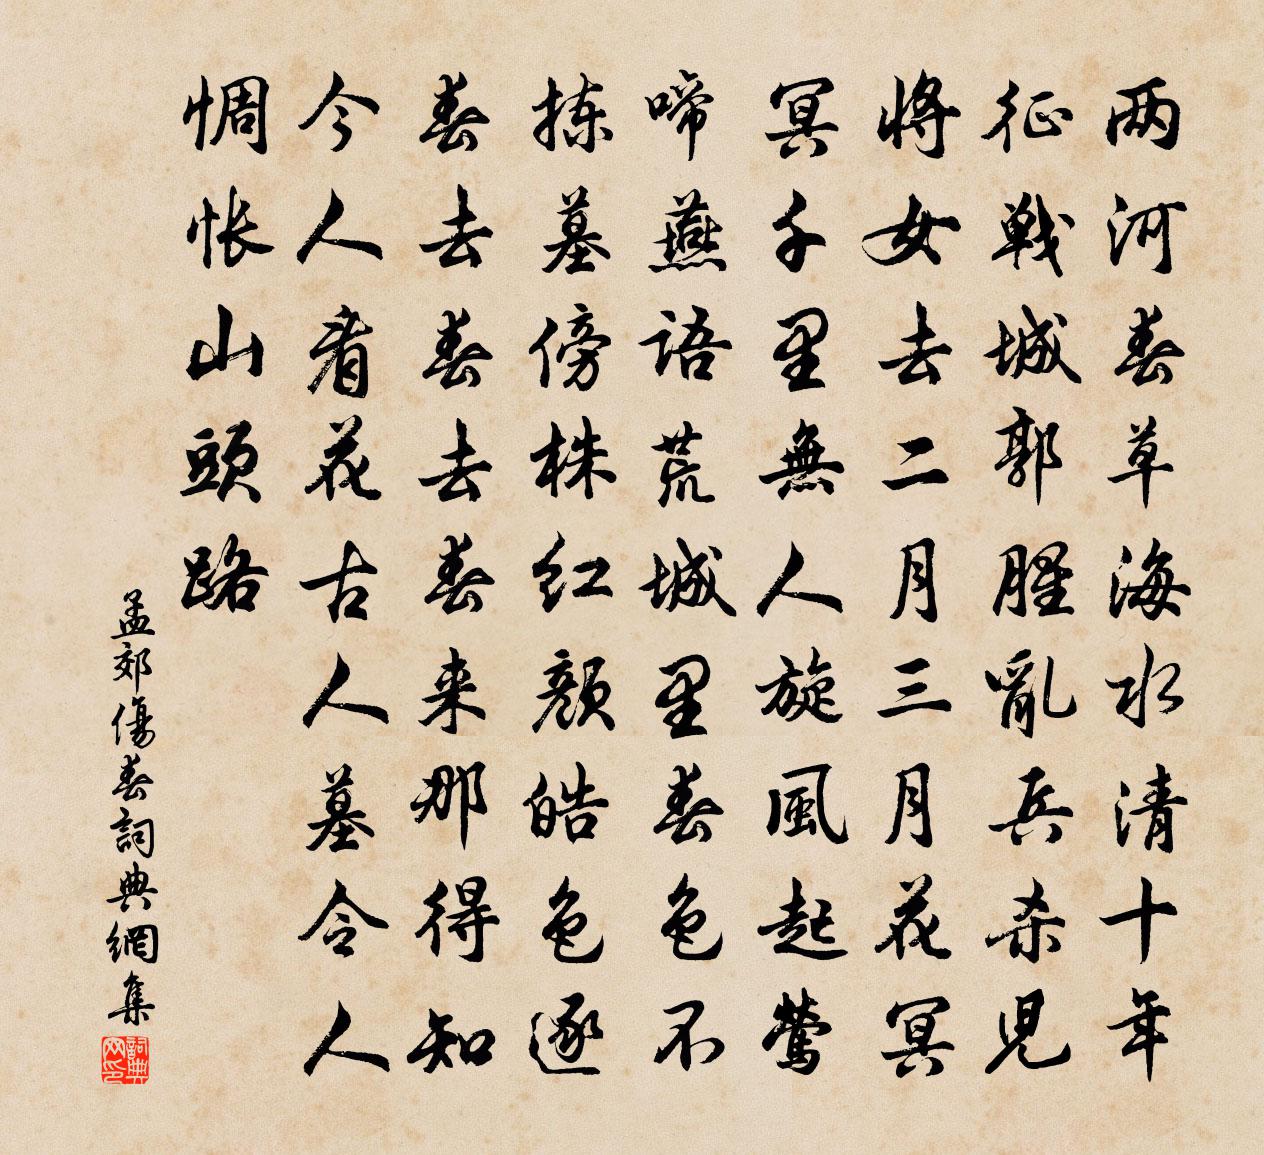 两河春草海水清十年
征戰城郭腥亂兵杀兒
將女去二月三月花冥
冥千里無人旋風起鶯
啼燕語荒城里春色不
拣墓傍株红顏皓色逐
春去春去春来那得知
今人看花古人墓令人
惆怅山頭路
孟郊傷春詞典網集
詞典网印